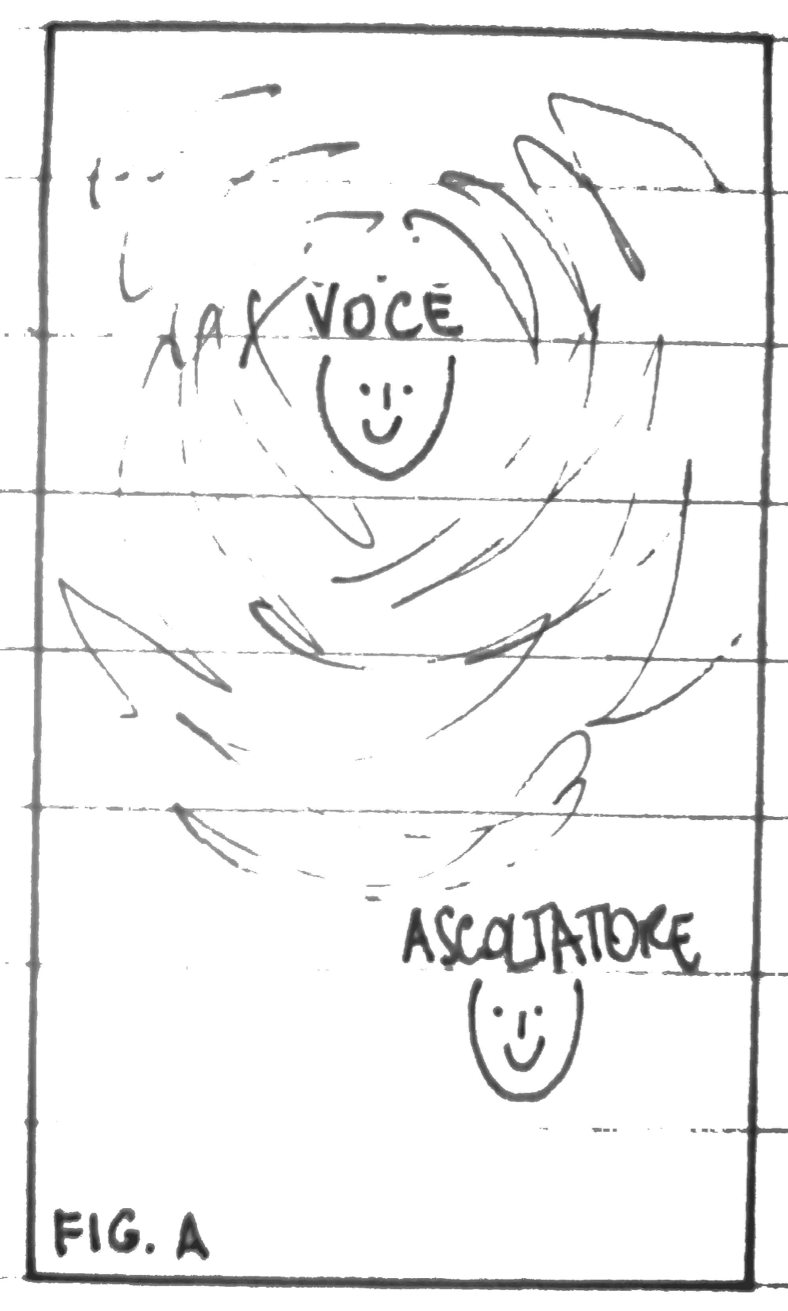 VOCE
ASCOLTATORE
FIG. A